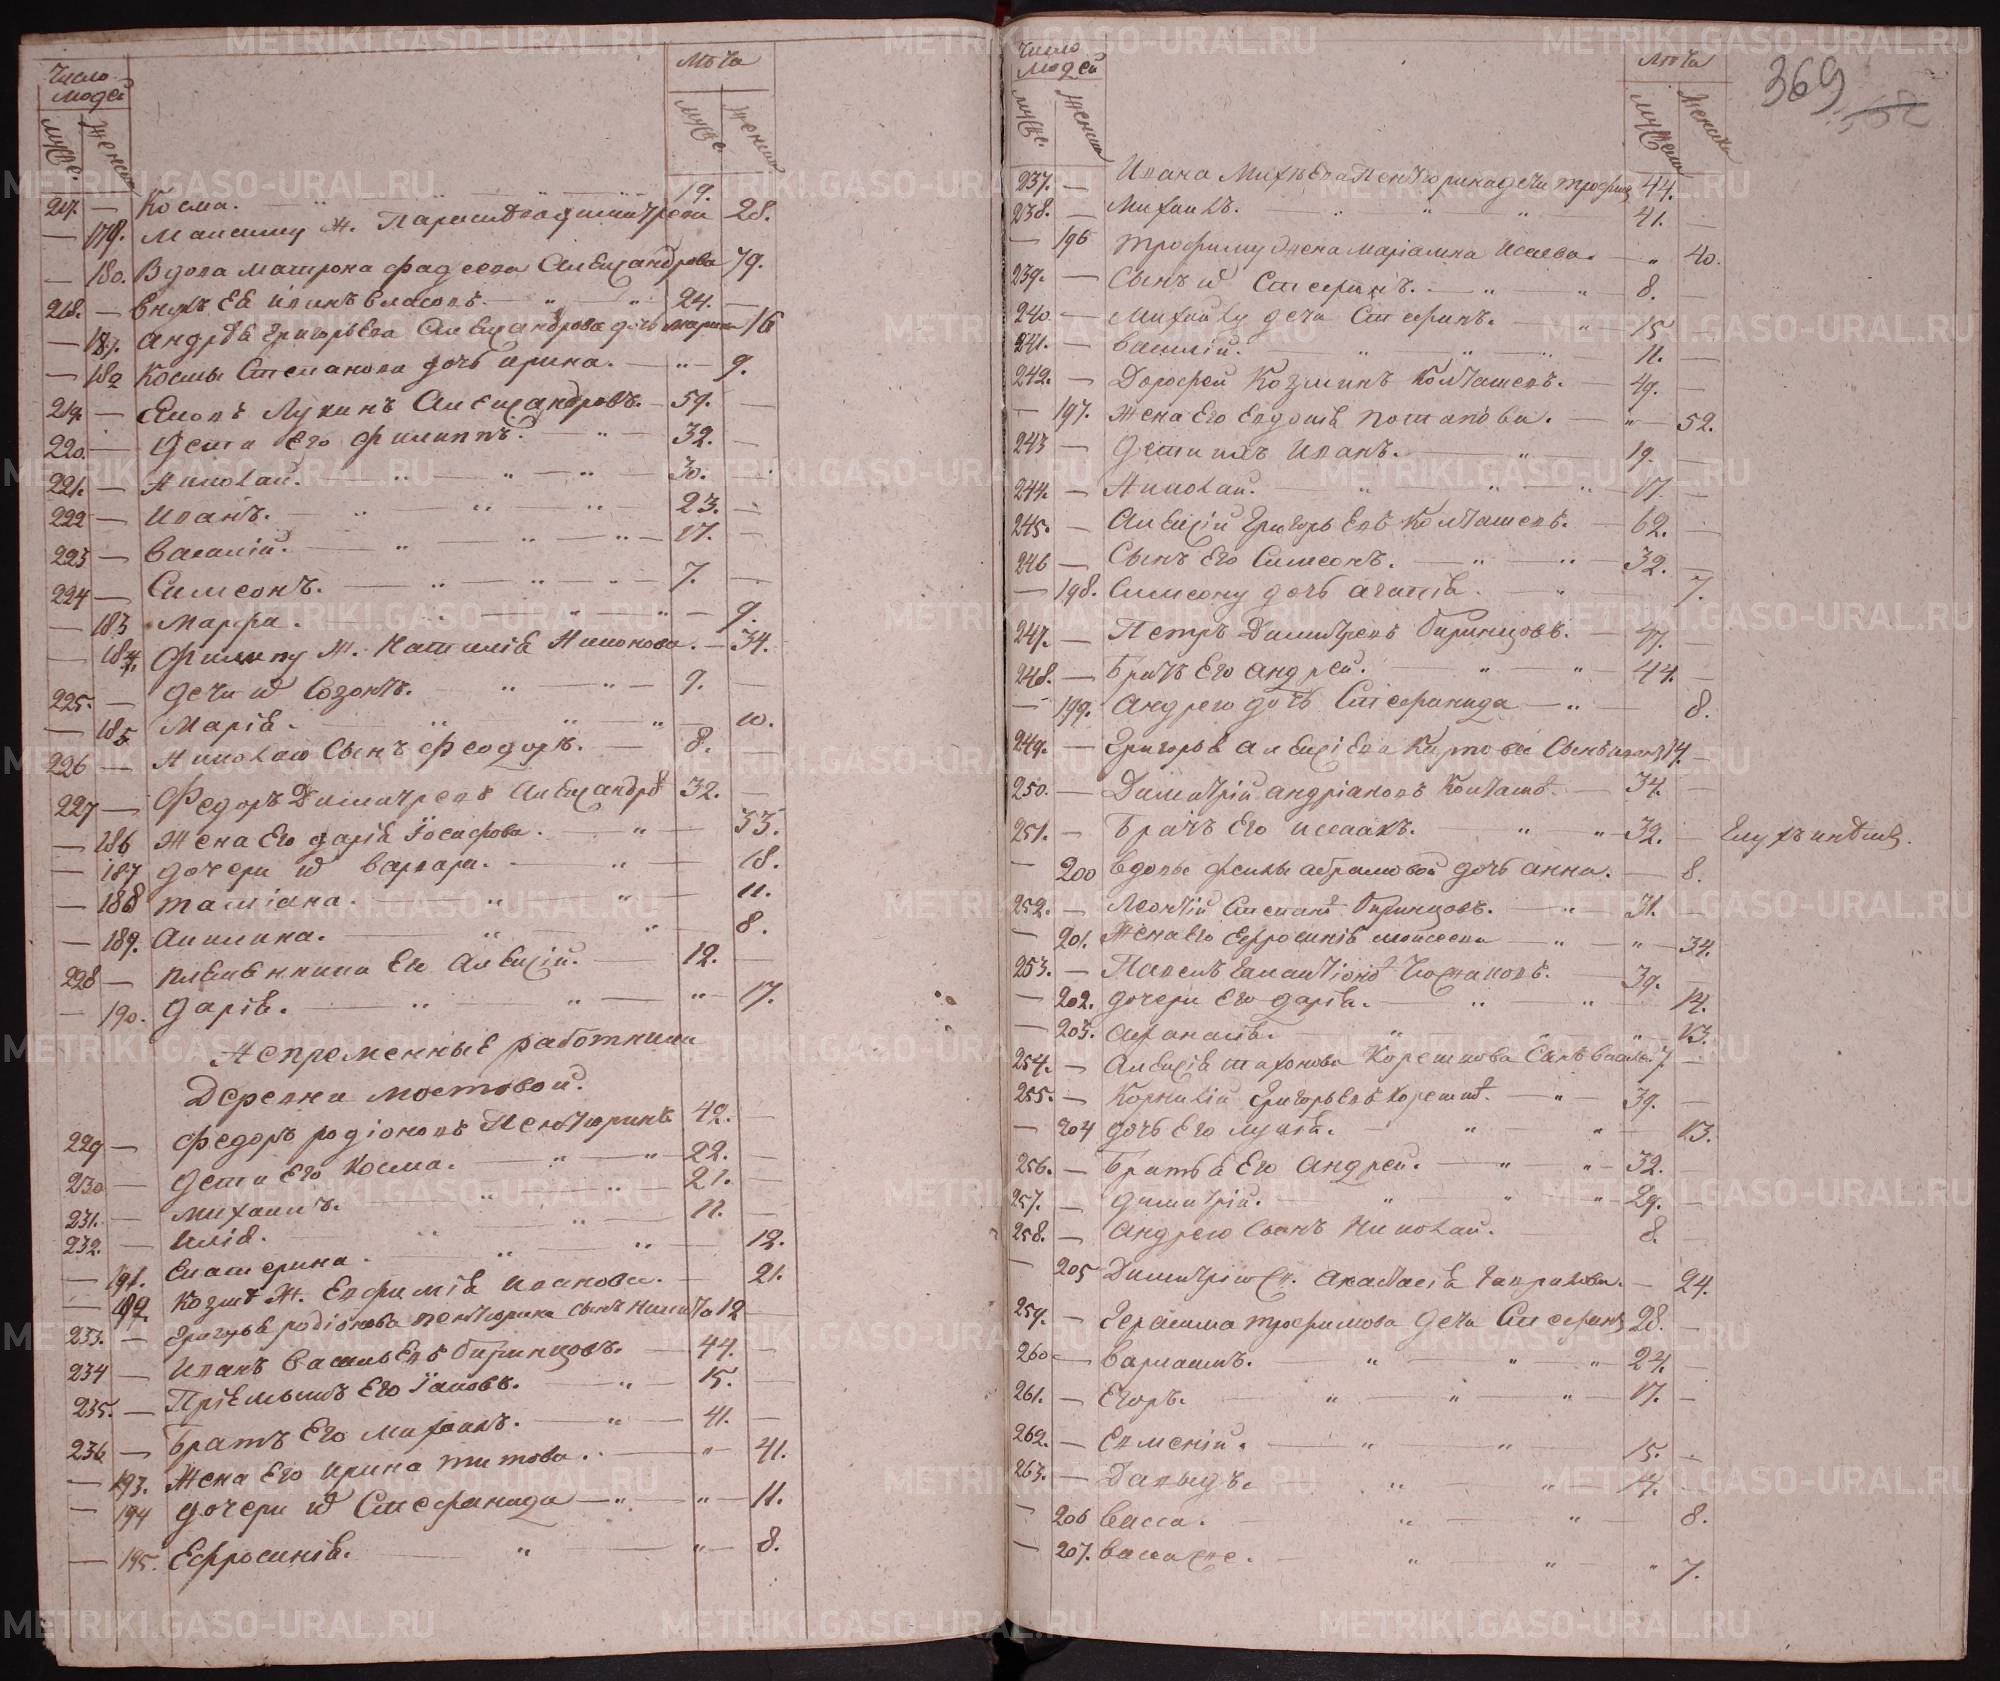 Число людей
Лѣта
мужс. женска
мужс. женска
217. — Косма. — 19.
— 179. Максиму ж. Параскѣва Димитрева 28.
— 180. Вдова матрона фадеева Алеѯандрова 79.
218. — внукъ Ея Иванъ власовъ. — 24. —
— 181. андрѣя григорьева Алеѯандрова дочь марина 16
— 182 космы Степанова дочь ирина. — 9.
219. — Яковъ Лукинъ Алеѯандровъ. — 59. —
220. — дети Его филиппъ. — 32. —
221. — Николай. — 30. —
222 — иванъ. — 23. —
223 — василій. — 17. —
224 — Симеонъ. — 7. —
— 183 марфа. — 9.
— 184. филипу ж. Наталія Никонова. — 34.
225. — дети ѿ Созонтъ. — 9. —
— 185 Марія. — 10.
226 — Николаю Сынъ феодоръ. — 8. —
227 — Федоръ Димитревъ Алеѯандро 32. —
— 186 Жена Его дарія Іосифова. — 33.
— 187 дочери ѿ варвара. — 18.
— 188 татіана. — 11.
— 189. Акилина. — 8.
228 — племянника Ея Алеѯій. — 12. —
— 190. дарія. — 17.
Непременные работники
Деревни мостовой.
229 — федоръ родіоновъ Пентюринъ 42. —
230 — дети Его косма. — 22. —
231. — михаилъ. — 21. —
232. — илія. — 11. —
— 191. Екатерина. — 12.
— 192. козмѣ ж. Евфимія иванова. — 21.
233. — григорья родіонова пентюрина сынъ никита 12
234 — иванъ васильевъ бирюнцовъ. — 44. —
235. — Пріемышъ Его Іаковъ. — 15. —
236 — братъ Его михаилъ. — 41. —
— 193. Жена Его ирина титова. — 41.
— 194 дочери ѿ Стефанида — 11.
— 195. Ефросинія. — 8.
Число людей
Лѣта
мужс. женска
мужска женска
369
237. — Ивана Михѣева пентюрина дети трофимъ 44.
238. — Михаилъ. — 41. —
— 196 трофиму жена маріамна исаева. — 40.
239. — Сынъ ѿ Стефанъ. — 8. —
240 — михаилу дети Стефанъ. — 15 —
241. — василій. — 11. —
242. — Дорофей козминъ Колташевъ. — 49. —
— 197. жена Его евдокія потапова. — 52.
243 — дети ихъ иванъ. — 19. —
244. — Николай. — 17. —
245. — Алеѯій григорьевъ Колташевъ. — 62. —
246 — Сынъ Его Симеонъ. — 32. —
— 198. Симеону дочь агафія. — 7.
247. — Петръ Димитревъ бирюнцовъ. — 47. —
248. — братъ Его андрей. — 44. —
— 199. андрею дочь Стефанида — 8.
249. — григорья алеѯіева Карпова Сынъ иванъ 14. —
250. — Димитрій андріановъ Колташо. — 34. —
251. — братъ Его исаакъ. — 32. —
— 200 вдовы феклы абрамовой дочь анна. — 8.
252. — Леонтій Степано бирюнцовъ. — 31. —
— 201. Жена Его Ефросинія моисеева — 34.
253. — Павелъ — 39. —
— 202. дочери Его дарія. — 14.
— 203. афанасія. — 13.
254. — Алеѯія Корешкова Сынъ василій 7. —
255. — Корнилій григорьевъ Корешко. — 39. —
— 204 дочь Его лукія. — 13.
256. — братья Его андрей. — 32. —
257. — димитрій. — 29. —
258. — андрею Сынъ Николай. — 8. —
— 205 Димитрію ж. анастасія гаврилова. — 24.
259. — Герасима трофимова дети Стефанъ 28. —
260 — варламъ. — 24. —
261. — Егоръ. — 17. —
262. — Евменій. — 15. —
263. — Давыдъ. — 14. —
— 206 васса. — 8.
— 207. васса же. — 7.
METRIKI.GASO-URAL.RU